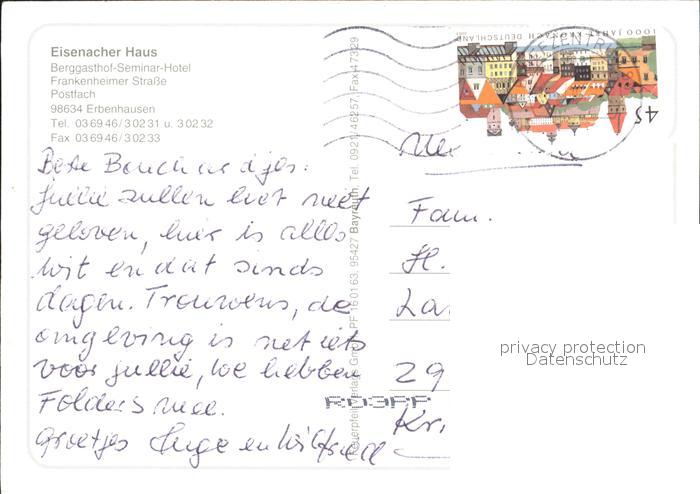 Eisenacher Haus
Berggasthof-Seminar-Hotel
Frankenheimer Straße
Postfach
98634 Erbenhausen
Tel. 03 69 46 / 3 02 31 u. 3 02 32
Fax 03 69 46 / 3 02 33
Beste
jullie zullen het niet
geloven, hier is alles
wit en dat sinds
dagen. Trouwens, de
omgeving is net iets
voor jullie, we hebben
Folders mee.
Groetjes Inge en Wilfried
PF 160163, 95427 Bayreuth, Tel. 0921/46257, Fax 47329
1000 JAHRE KRONACH DEUTSCHLAND
45
Fam.
H.
La
29
Kr
privacy protection
Datenschutz